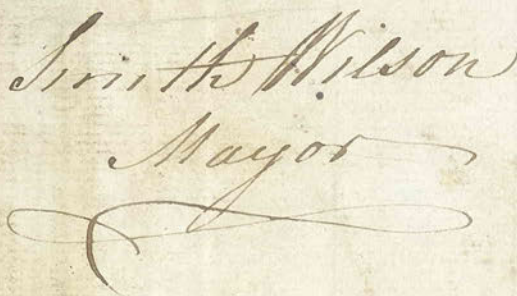 Smith Wilson
Mayor